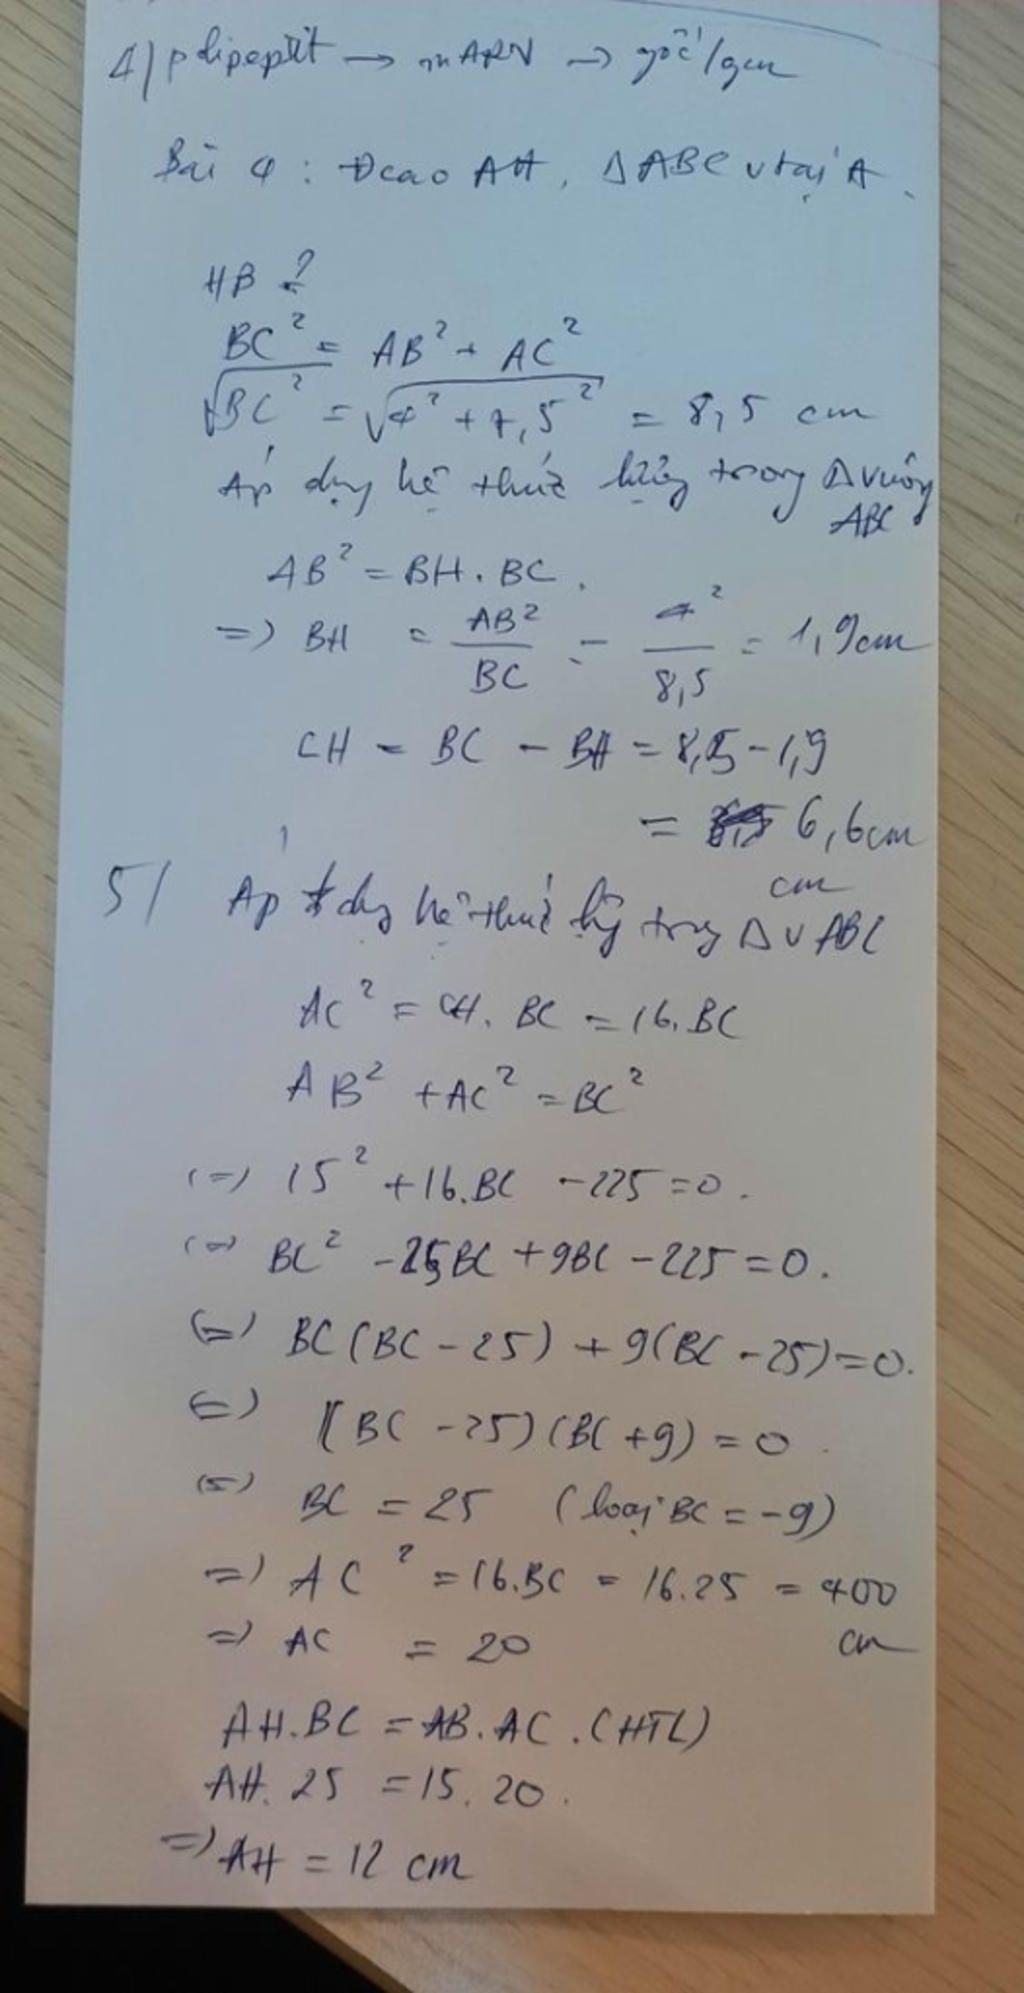 4) polipeptit → mARN → gốc/gen
Bài 4 : Đcao AH, ΔABC v tại A.
HB ?
BC² = AB² + AC²
√BC² = √4² + 7,5² = 8,5 cm
Áp dụng hệ thức lượng trong Δ vuông
ABC
AB² = BH . BC .
=> BH = AB²/BC = 4²/8,5 = 1,9cm
CH = BC - BH = 8,5 - 1,9
= 6,6cm
cm
5/ Áp dụng hệ thức lg trong Δ v ABC
AC² = CH. BC = 16. BC
AB² + AC² = BC²
(=) 15² + 16.BC - 225 = 0 .
(=) BC² - 25BC + 9BC - 225 = 0.
(=) BC (BC - 25) + 9(BC - 25) = 0.
(=) (BC - 25) (BC + 9) = 0 .
(=) BC = 25 (loại BC = -9)
=) AC² = 16.BC = 16.25 = 400
=) AC = 20 cm
AH.BC = AB.AC . (HTL)
AH. 25 = 15. 20 .
=) AH = 12 cm